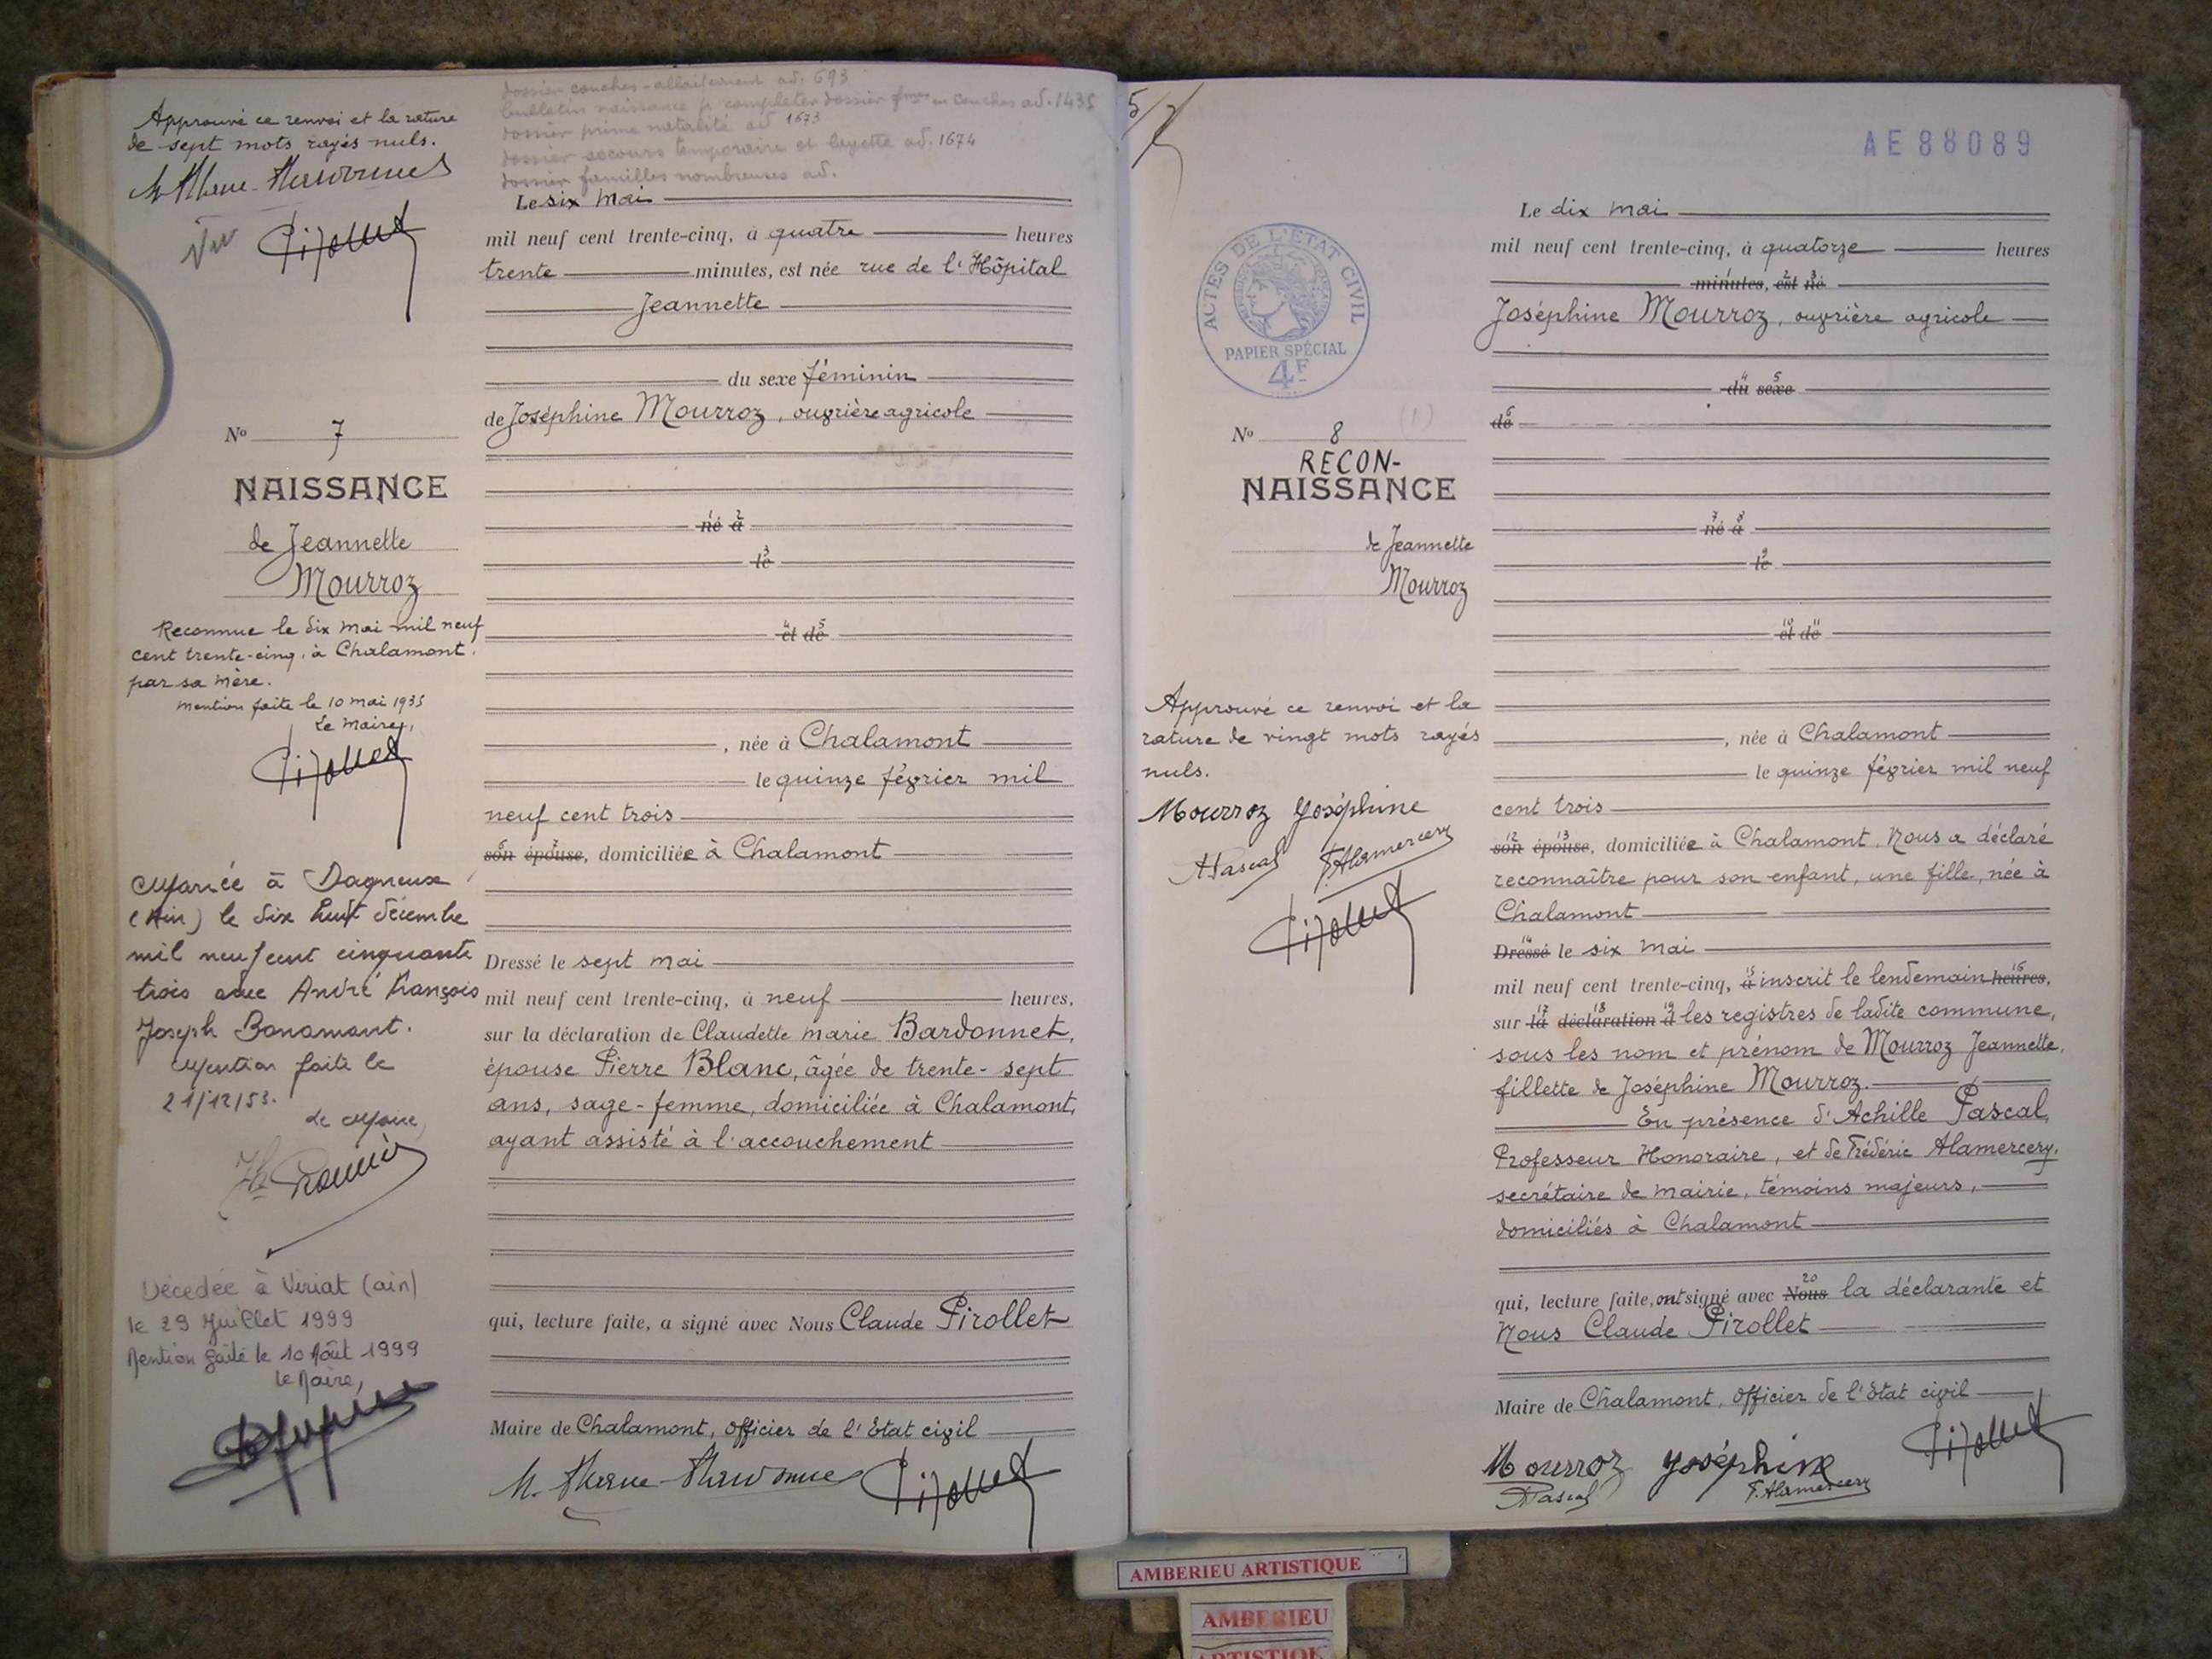 dossier couches-allaitement ad. 693
bulletin naissance p completer dossier fmes en couches ad. 1435
dossier prime natalité ad 1673
dossier secours temporaire et layette ad. 1674
dossier familles nombreuses ad.
Approuvé ce renvoi et la rature
de sept mots rayés nuls.
Vu
Pirollet
Le six mai
mil neuf cent trente-cinq, à quatre heures
trente minutes, est née rue de l'Hôpital
Jeannette
du sexe féminin
de Joséphine Mourroz, ouvrière agricole
No 7
NAISSANCE
de Jeannette
Mourroz
1 2
né à
3
le
4 5
et de
Reconnue le dix mai mil neuf
cent trente-cinq, à Chalamont,
par sa mère.
Mention faite le 10 mai 1935
Le Maire,
Pirollet
, née à Chalamont
le quinze février mil
neuf cent trois
son épouse, domiciliée à Chalamont
Mariée à Dagneux
(Ain) le dix huit décembre
mil neuf cent cinquante
trois avec André François
Joseph Bonamant.
Mention faite le
21/12/53.
Le Maire,
Dressé le sept mai
mil neuf cent trente-cinq, à neuf heures,
sur la déclaration de Claudette Marie Bardonnet,
épouse Pierre Blanc, âgée de trente-sept
ans, sage-femme, domiciliée à Chalamont,
ayant assisté à l'accouchement
Décédée à Viriat (ain)
le 29 Juillet 1999
Mention faite le 10 Août 1999
Le Maire,
qui, lecture faite, a signé avec Nous Claude Pirollet
Maire de Chalamont, Officier de l'Etat civil
Pirollet
5/7
AE 88089
ACTES DE L'ETAT CIVIL
PAPIER SPÉCIAL
4F
Le dix mai
mil neuf cent trente-cinq, à quatorze heures
1 2 3
minutes, est né
Joséphine Mourroz, ouvrière agricole
4 5
du sexe
6
de
(1)
No 8
RECON-
NAISSANCE
de Jeannette
Mourroz
7 8
né à
9
le
10 11
et de
Approuvé ce renvoi et la
rature de vingt mots rayés
nuls.
Mourroz Joséphine
APascal F. Alamercery
Pirollet
, née à Chalamont
le quinze février mil neuf
cent trois
12 13
son épouse, domiciliée à Chalamont, Nous a déclaré
reconnaître pour son enfant, une fille, née à
Chalamont
14
Dressé le six mai
15 16
mil neuf cent trente-cinq, à inscrit le lendemain heures,
17 18 19
sur la déclaration d les registres de ladite commune,
sous les nom et prénom de Mourroz Jeannette,
fillette de Joséphine Mourroz.
En présence d'Achille Pascal,
Professeur Honoraire, et de Frédéric Alamercery,
secrétaire de mairie, témoins majeurs,
domiciliés à Chalamont
20
qui, lecture faite, ont signé avec Nous la déclarante et
Nous Claude Pirollet
Maire de Chalamont, Officier de l'Etat civil
Mourroz Joséphine Pirollet
APascal F. Alamercery
AMBERIEU ARTISTIQUE
AMBERIEU
ARTISTIQUE